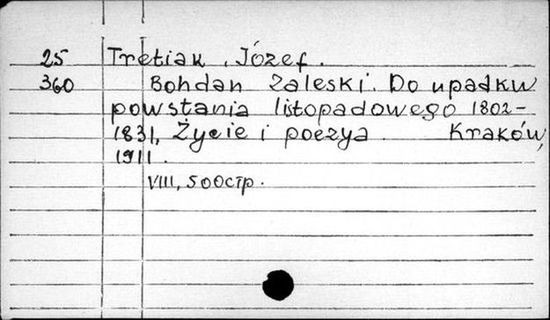 25 Tretiak, Józef.
360 Bohdan Zaleski. Do upadku
powstania listopadowego 1802-
1831, Życie i poezya Kraków,
1911.
VIII, 500 стр.